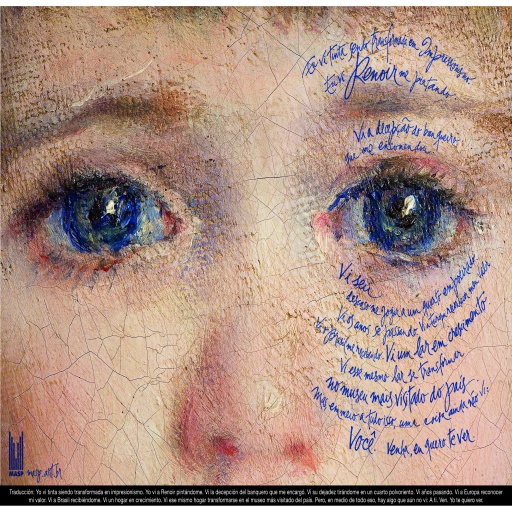 Eu vi tinta sendo transformada em Impressionismo
Eu vi Renoir me pintando
Vi a decepção do banqueiro
que me encomendou
Vi seu
descaso me jogar a um quarto empoeirado
Vi os anos se passando. Vi a Europa reconhecer meu valor
Vi o Brasil me recebendo. Vi um lar em crescimento
Vi esse mesmo lar se transformar
no museu mais visitado do país
Mas em meio a tudo isso, uma coisa ainda não vi:
Você. Venha, eu quero te ver
MASP masp.art.br
Traducción: Yo vi tinta siendo transformada en impresionismo. Yo vi a Renoir pintándome. Vi la decepción del banquero que me encargó. Vi su dejadez tirándome en un cuarto polvoriento. Vi años pasando. Vi a Europa reconocer
mi valor. Vi a Brasil recibiéndome. Vi un hogar en crecimiento. Vi ese mismo hogar transformarse en el museo más visitado del país. Pero, en medio de todo eso, hay algo que aún no vi: A ti. Ven. Yo te quiero ver.